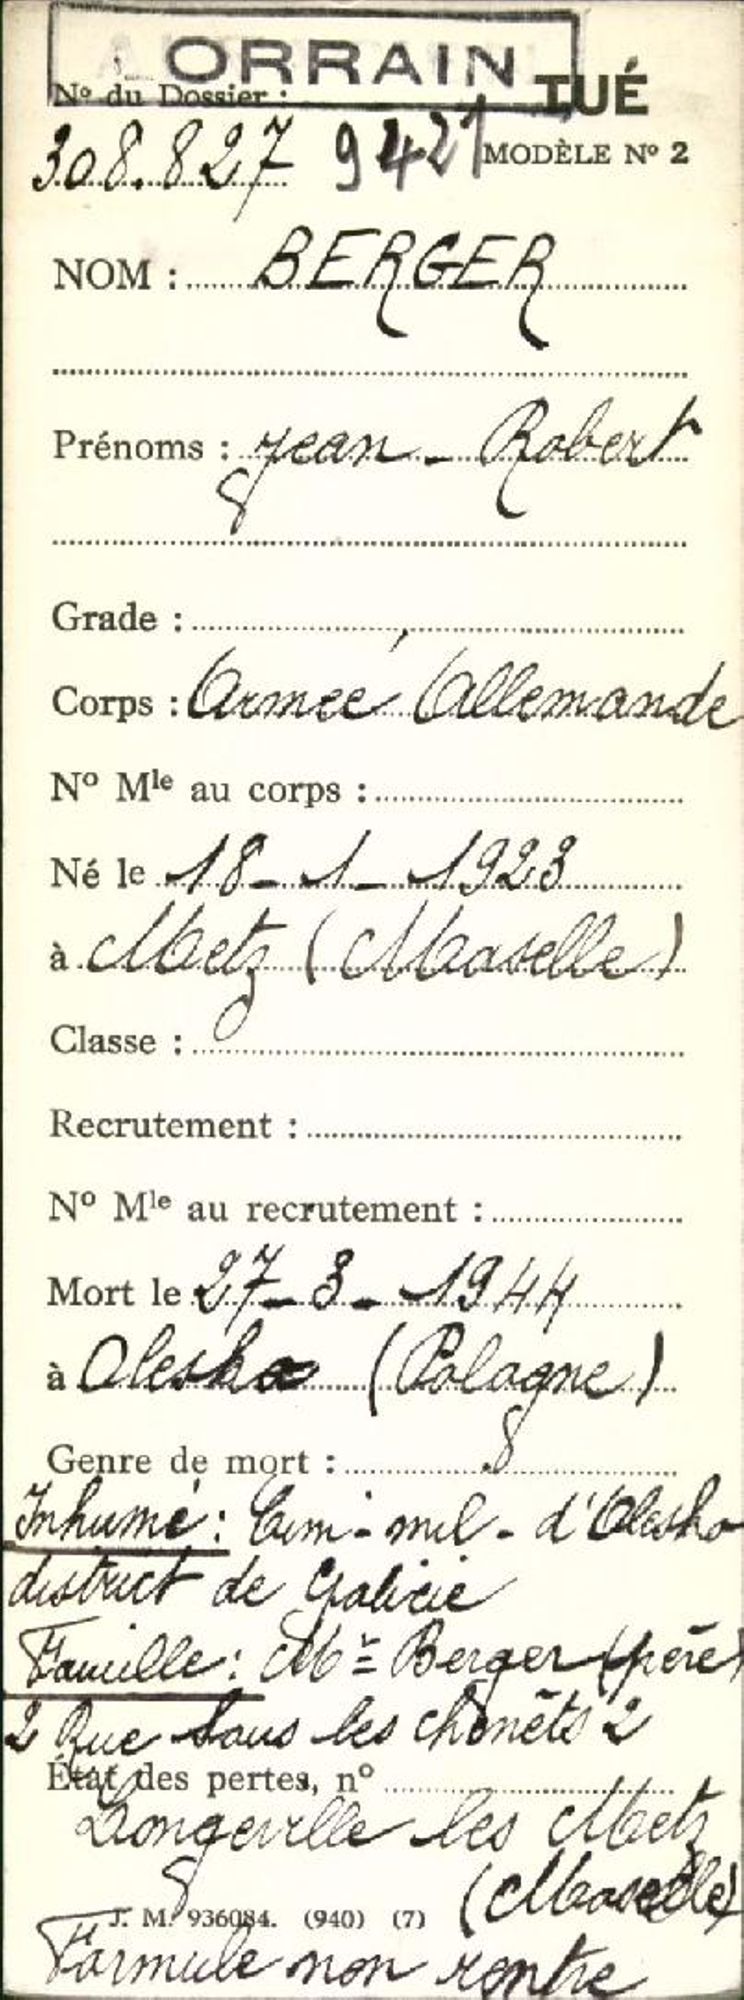 ORRAIN
TUÉ
Nº du Dossier :
308.827 9421 MODÈLE Nº 2
NOM : BERGER
Prénoms : Jean - Robert
Grade :
Corps : Armée Allemande
Nº Mle au corps :
Né le 18-1-1923
à Metz (Moselle)
Classe :
Recrutement :
Nº Mle au recrutement :
Mort le 27-3-1944
à Olesko (Pologne)
Genre de mort :
Inhumé : Cim-mil-d'Olesko
district de Galicie
Famille : Mr Berger (père)
2 Rue Sous les chenêts 2
État des pertes, nº
Longeville les Metz
(Moselle)
J. M. 936084. (940) (7)
Formule non rentre